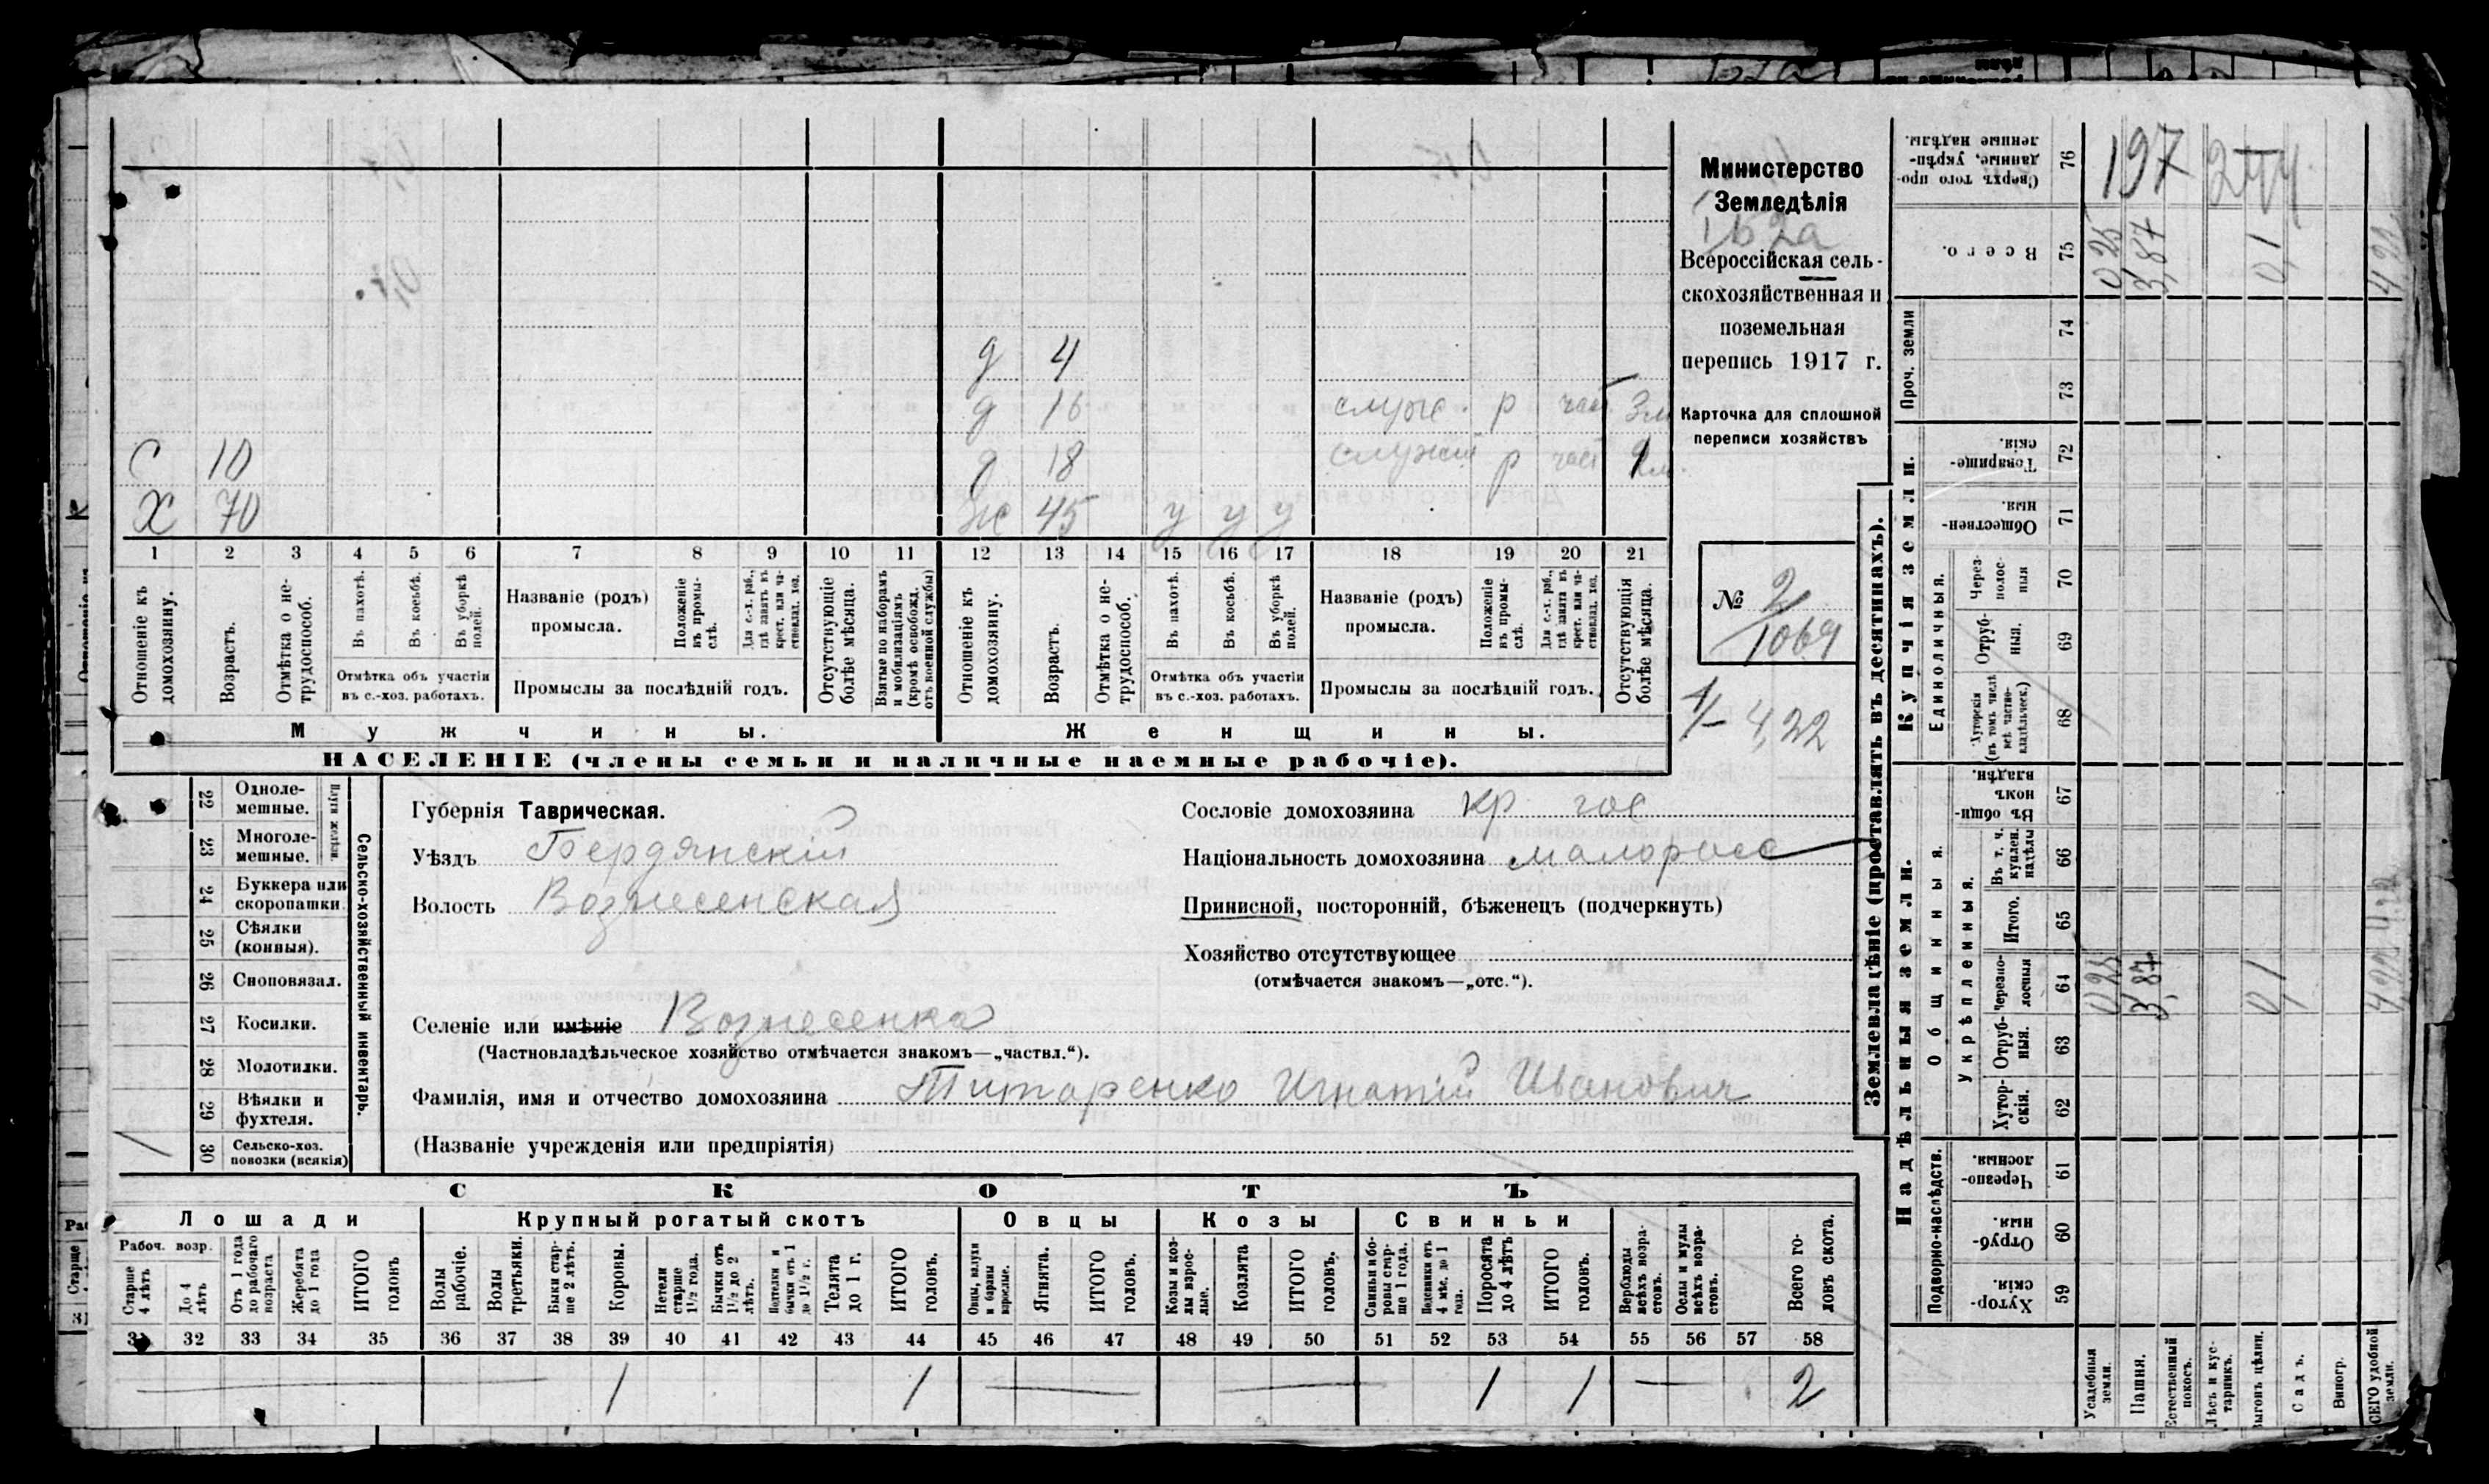 Министерство
Земледѣлія
Всероссійская сель-
скохозяйственная и
поземельная
перепись 1917 г.
Карточка для сплошной
переписи хозяйствъ
№ 2/1069
4,22
д 4
д 16 служ. р част 3м
С 10 д 18 служит р част
Х 70 ж 45 у у у
1 2 3 4 5 6 7 8 9 10 11 12 13 14 15 16 17 18 19 20 21
Отношеніе къ домохозяину.
Возрастъ.
Отмѣтка о не-трудоспособ.
Въ пахотѣ.
Въ косьбѣ.
Въ уборкѣ полей.
Отмѣтка объ участіи въ с.-хоз. работахъ.
Названіе (родъ) промысла.
Положеніе въ промы-слѣ.
Для с.-х. раб., гдѣ занятъ въ крест. или ча-стновлад. хоз.
Промыслы за послѣдній годъ.
Отсутствующіе болѣе мѣсяца.
Взятые по наборамъ и мобилизаціямъ (кромѣ освобожд. отъ военной службы)
Отношеніе къ домохозяину.
Возрастъ.
Отмѣтка о не-трудоспособ.
Въ пахотѣ.
Въ косьбѣ.
Въ уборкѣ полей.
Отмѣтка объ участіи въ с.-хоз. работахъ.
Названіе (родъ) промысла.
Положеніе въ промы-слѣ.
Для с.-х. раб., гдѣ занята въ крест. или ча-стновлад. хоз.
Промыслы за послѣдній годъ.
Отсутствующія болѣе мѣсяца.
Мужчины. Женщины.
НАСЕЛЕНІЕ (члены семьи и наличные наемные рабочіе).
22 Одноле-мешные.
23 Многоле-мешные.
Плуги желѣзн.
24 Буккера или скоропашки.
25 Сѣялки (конныя).
26 Сноповязал.
27 Косилки.
28 Молотилки.
29 Вѣялки и фухтеля.
30 Сельско-хоз. повозки (всякія) /
Сельско-хозяйственный инвентарь.
Губернія Таврическая.
Уѣздъ Бердянскій
Волость Вознесенская
Селеніе или имѣніе Вознесенка
(Частновладѣльческое хозяйство отмѣчается знакомъ—„частвл.“).
Фамилія, имя и отчество домохозяина Титаренко Игнатій Иванович
(Названіе учрежденія или предпріятія)
Сословіе домохозяина кр гос
Національность домохозяина малоросс
Приписной, посторонній, бѣженецъ (подчеркнуть)
Хозяйство отсутствующее
(отмѣчается знакомъ—„отс.“).
СКОТЪ
Лошади Крупный рогатый скотъ Овцы Козы Свиньи
Рабоч. возр.
Старше 4 лѣтъ
До 4 лѣтъ
Отъ 1 года до рабочаго возраста
Жеребята до 1 года
ИТОГО головъ
Волы рабочіе.
Волы третьяки.
Быки стар-ше 2 лѣтъ.
Коровы.
Нетели старше 1½ года.
Бычки отъ 1½ до 2 лѣтъ.
Нетелки и бычки отъ 1 до 1½ г.
Телята до 1 г.
ИТОГО головъ.
Овцы, валухи и бараны взрослые.
Ягнята.
ИТОГО головъ.
Козы и коз-лы взрос-лые.
Козлята
ИТОГО головъ.
Свиньи и бо-ровы стар-ше 1 года.
Подсвинки отъ 4 мѣс. до 1 года.
Поросята до 4 лѣтъ
ИТОГО головъ.
Верблюды всѣхъ возра-стовъ.
Ослы и мулы всѣхъ возра-стовъ.
Всего го-ловъ скота.
31 32 33 34 35 36 37 38 39 40 41 42 43 44 45 46 47 48 49 50 51 52 53 54 55 56 57 58
1 1 1 1 2
Землевладѣніе (проставлять въ десятинахъ).
Купчія земли.
Надѣльныя земли.
Проч. земли
Единоличныя.
Общинныя.
Укрѣпленныя.
Подворно-наслѣдств.
76 Сверхъ того про-данные, укрѣп-ленные надѣлы. 197
75 Всего. 0,25 3,87 0,1 4,22
74
73
72 Товарище-скія.
71 Обществен-ныя.
70 Через-полос-ныя
69 Отруб-ныя.
68 Хуторскія (въ томъ числѣ всѣ частно-владѣльческ.)
67 Въ общи-номъ владѣн.
66 Въ т. ч. куплен. надѣлы
65 Итого.
64 Черезпо-лосныя 0,25 3,87 0,1 4,22
63 Отруб-ныя.
62 Хутор-скія.
61 Черезпо-лосныя.
60 Отруб-ныя.
59 Хутор-скія.
Усадебныя земли.
Пашня.
Естественный покосъ.
Лѣсъ и кус-тарникъ.
Выгонъ цѣлин.
Садъ.
Виногр.
ВСЕГО удобной земли.